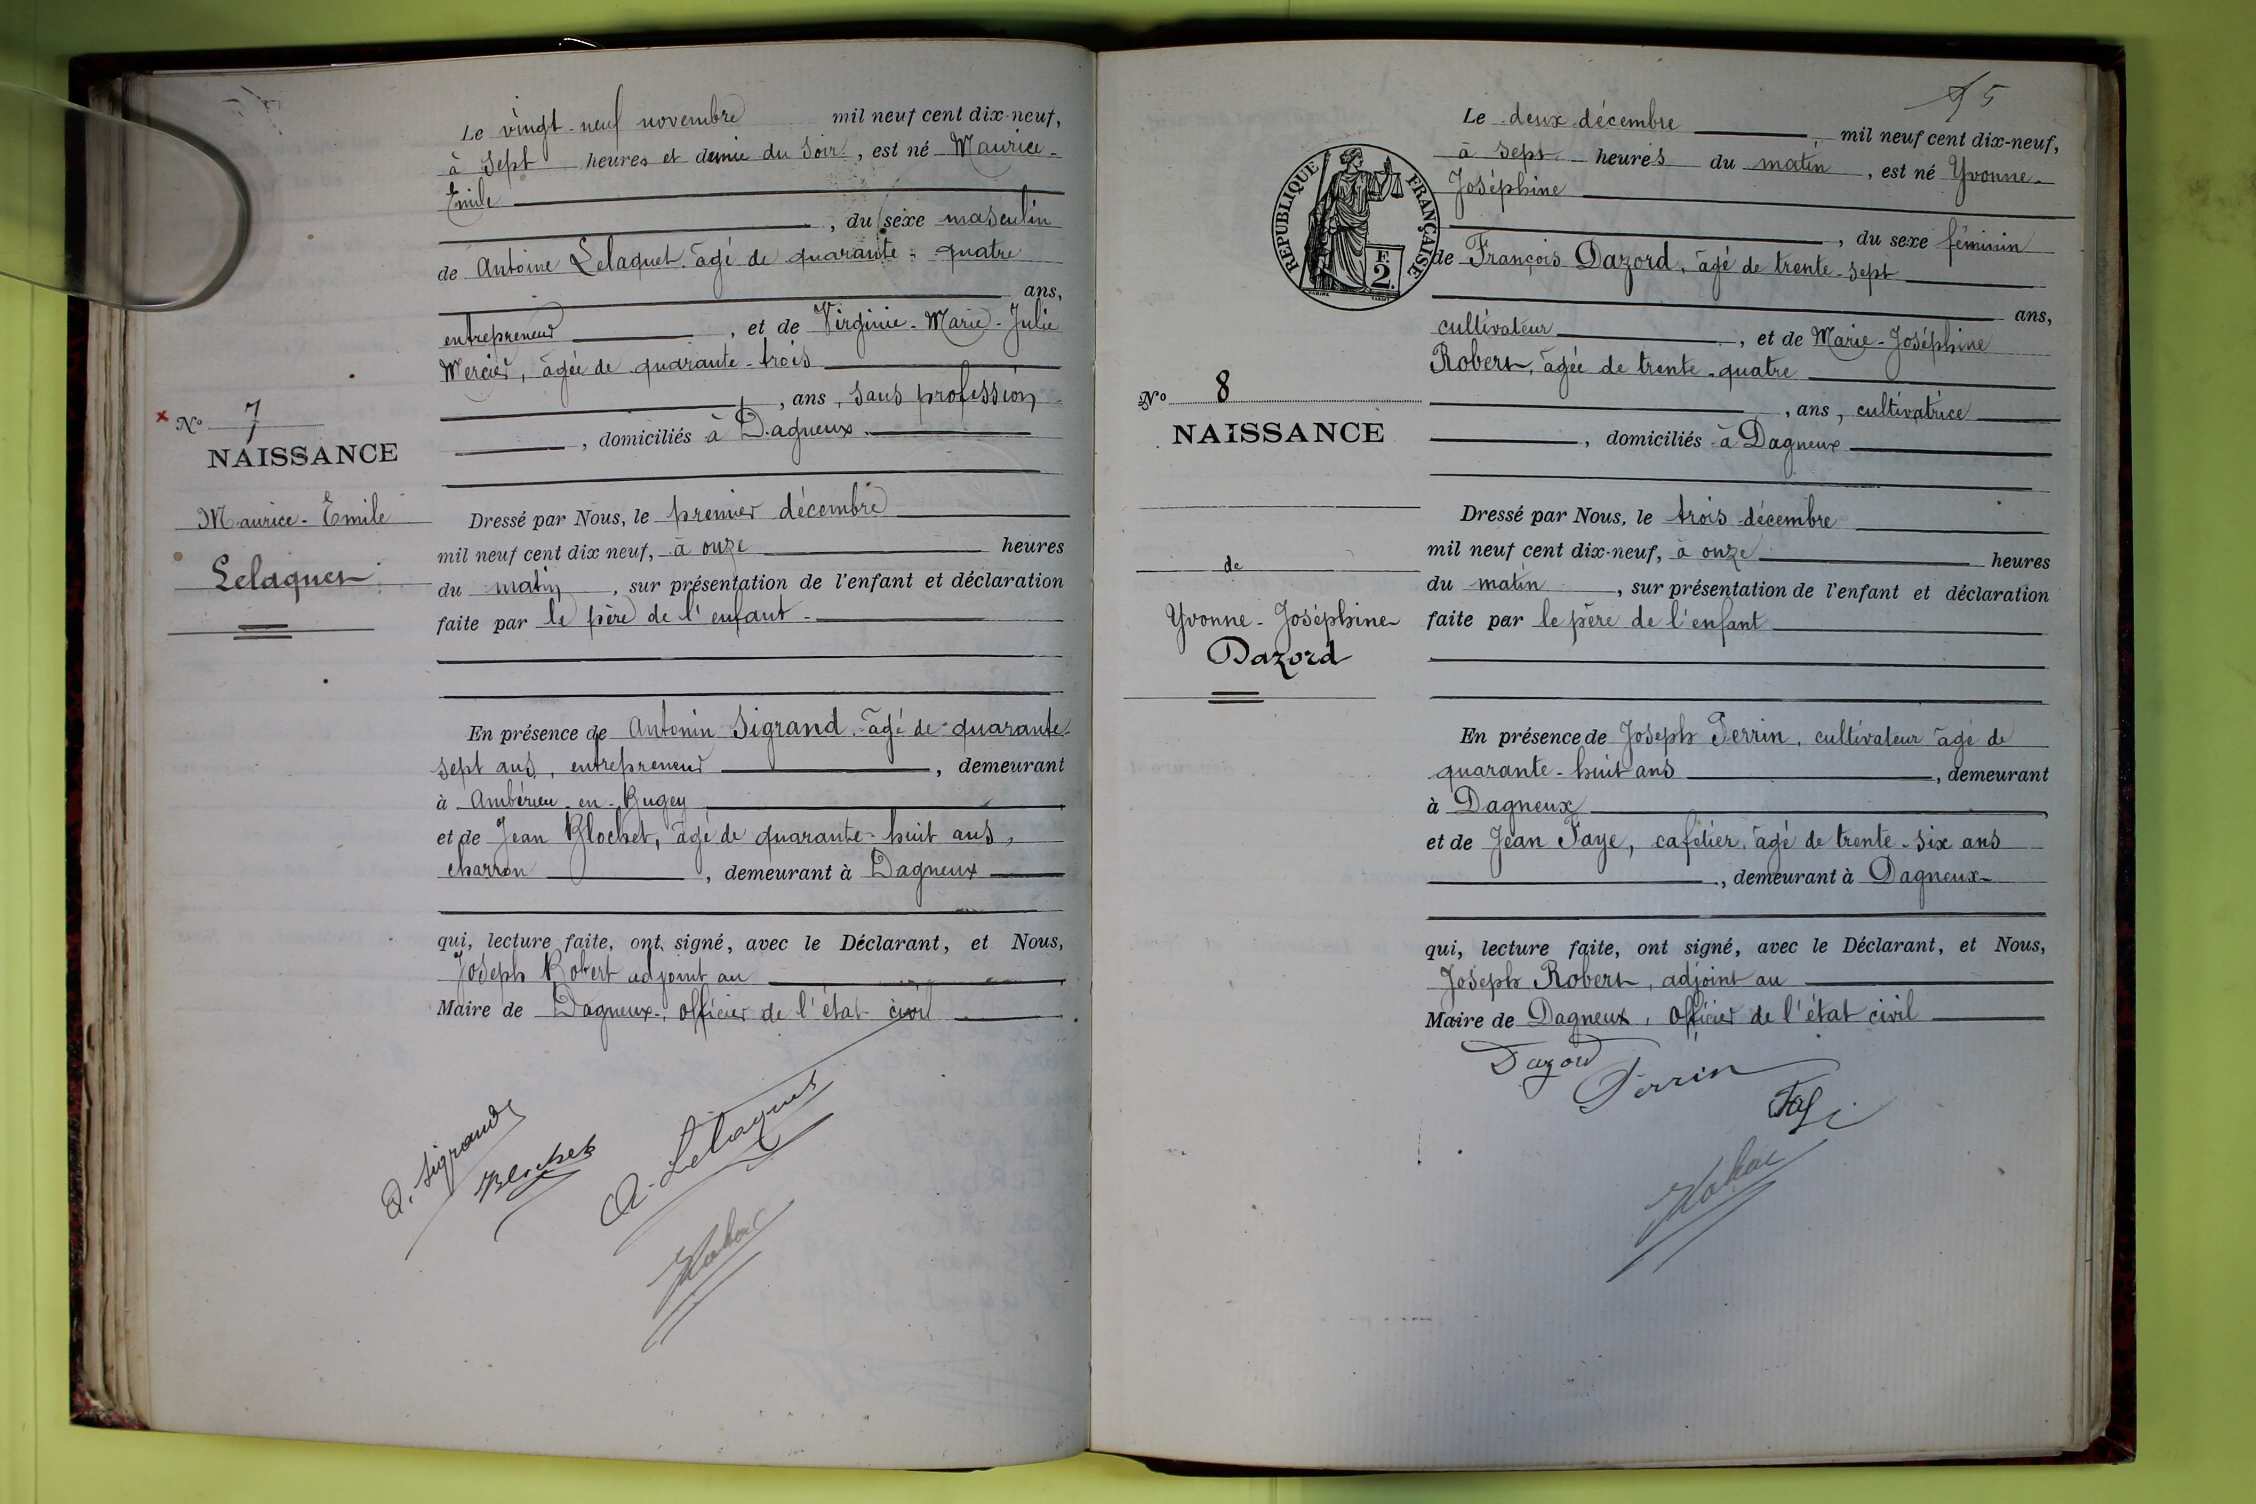 Le vingt-neuf novembre mil neuf cent dix-neuf,
à sept heures et demie du soir, est né Maurice-
Emile
, du sexe masculin
de Antoine Lelaquet âgé de quarante-quatre
ans,
entrepreneur, et de Virginie-Marie-Julie
Mercier, âgée de quarante-trois
, ans, sans profession
, domiciliés à Dagneux
No 7
NAISSANCE
Maurice-Emile
Lelaquet
Dressé par Nous, le premier décembre
mil neuf cent dix neuf, à onze heures
du matin, sur présentation de l'enfant et déclaration
faite par le père de l'enfant
En présence de Antonin Sigrand âgé de quarante-
sept ans, entrepreneur, demeurant
à Ambérieu-en-Bugey
et de Jean Blochet, âgé de quarante-huit ans,
charron, demeurant à Dagneux
qui, lecture faite, ont signé, avec le Déclarant, et Nous,
Joseph Robert adjoint au
Maire de Dagneux, officier de l'état civil
A. Sigrand
Blochet
A. Lelaquet
5
Le deux décembre mil neuf cent dix-neuf,
à sept heures du matin, est né Yvonne-
Joséphine
, du sexe féminin
RÉPUBLIQUE FRANÇAISE
F.
2.
de François Dazord, âgé de trente-sept
ans,
cultivateur, et de Marie-Joséphine
Robert, âgée de trente-quatre
, ans, cultivatrice
, domiciliés à Dagneux
No 8
NAISSANCE
de
Yvonne-Joséphine
Dazord
Dressé par Nous, le trois décembre
mil neuf cent dix-neuf, à onze heures
du matin, sur présentation de l'enfant et déclaration
faite par le père de l'enfant
En présence de Joseph Perrin, cultivateur âgé de
quarante-huit ans, demeurant
à Dagneux
et de Jean Faye, cafetier, âgé de trente-six ans
, demeurant à Dagneux
qui, lecture faite, ont signé, avec le Déclarant, et Nous,
Joseph Robert, adjoint au
Maire de Dagneux, officier de l'état civil
Dazord
Perrin